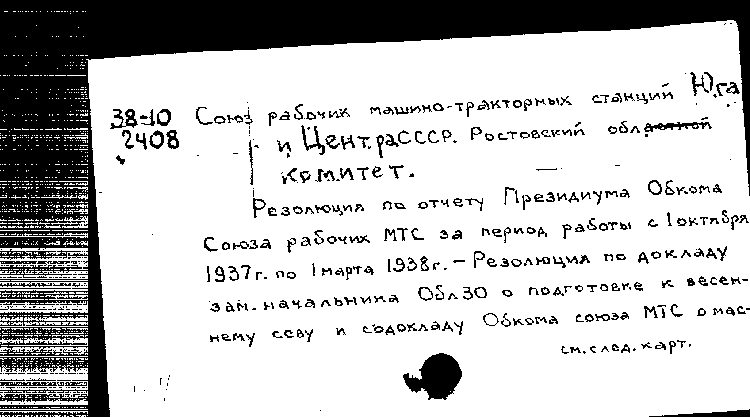 38-10 Союз рабочих машино-тракторных станций Юга
2408 и Центра СССР. Ростовский областной
комитет.
Резолюция по отчету Президиума Обкома
Союза рабочих МТС за период работы с 1 октября
1937 г. по 1 марта 1938 г. – Резолюция по докладу
зам. начальника ОблЗО о подготовке к весен-
нему севу и содокладу Обкома союза МТС о мас-
см. след. карт.